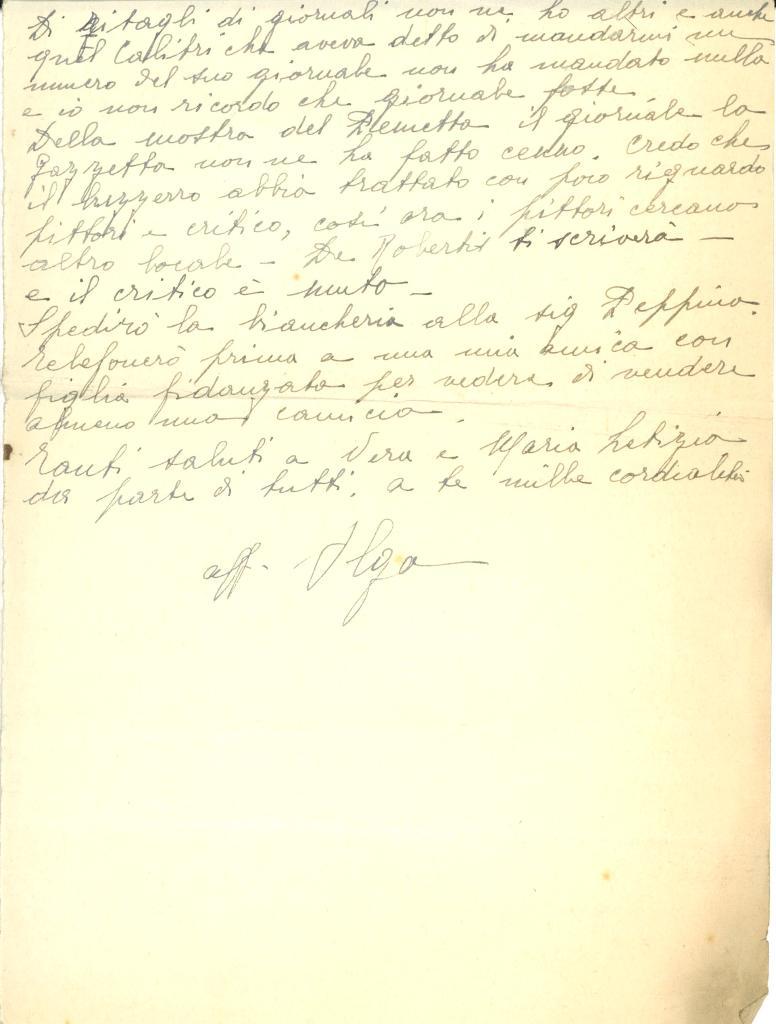 Di ritagli di giornali non ne ho altri e anche
quel Calitri che aveva detto di mandarmi un
numero del suo giornale non ha mandato nulla
e io non ricordo che giornale fosse
Della mostra del Demetta il giornale la
Gazzetta non ne ha fatto cenno. Credo che
il abbia trattato con poco riguardo
pittori e critico, così ora i pittori cercano
altro locale – De Robertis ti scriverà –
e il critico è muto –
Spedirò la biancheria alla sig Peppina.
Telefonerò prima a una mia amica con
figlia fidanzata per vedere di vendere
almeno una camicia.
Tanti saluti a Vera e Maria Letizia
da parte di tutti, a te mille cordialità
aff. Olga